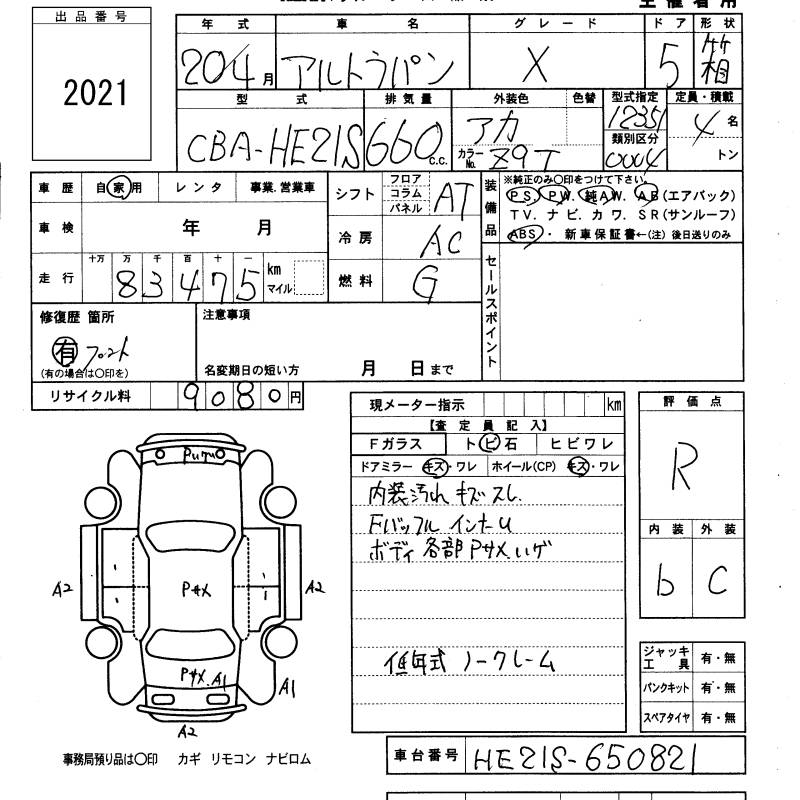 出品番号
2021
年式 車名 グレード ドア 形状
20 4月 アルトラパン X 5 箱
型式 排気量 外装色 色替 型式指定 定員・積載
CBA-HE21S 660 c.c. アカ 12351 4名
カラーNo. Z9T 類別区分 0004 トン
車歴 自家用 レンタ 事業.営業車
シフト フロア コラム パネル AT
装備品 ※純正のみ○印をつけて下さい。
PS. PW. 純AW. AB(エアバック)
TV. ナビ. カワ. SR(サンルーフ)
ABS・ 新車保証書←(注)後日送りのみ
車検 年 月
冷房 AC
走行 十万 万 千 百 十 一
83475 km マイル
燃料 G
セールスポイント
修復歴 箇所
有 フロント
(有の場合は○印を)
注意事項
名変期日の短い方 月 日まで
リサイクル料 9080円
現メーター指示 km
【査定員記入】
Fガラス トビ石 ヒビワレ
ドアミラー キズ・ワレ ホイール(CP) キズ・ワレ
内装汚れ キズ スレ
Fバッフル インナーU
ボディ 各部 Pサメ.ハゲ
低年式 ノークレーム
評価点
R
内装 外装
b C
A2 Pサメ A2
Pサメ.A1
A1
A2
ジャッキ工具 有・無
パンクキット 有・無
スペアタイヤ 有・無
事務局預り品は○印 カギ リモコン ナビロム
車台番号 HE21S-650821